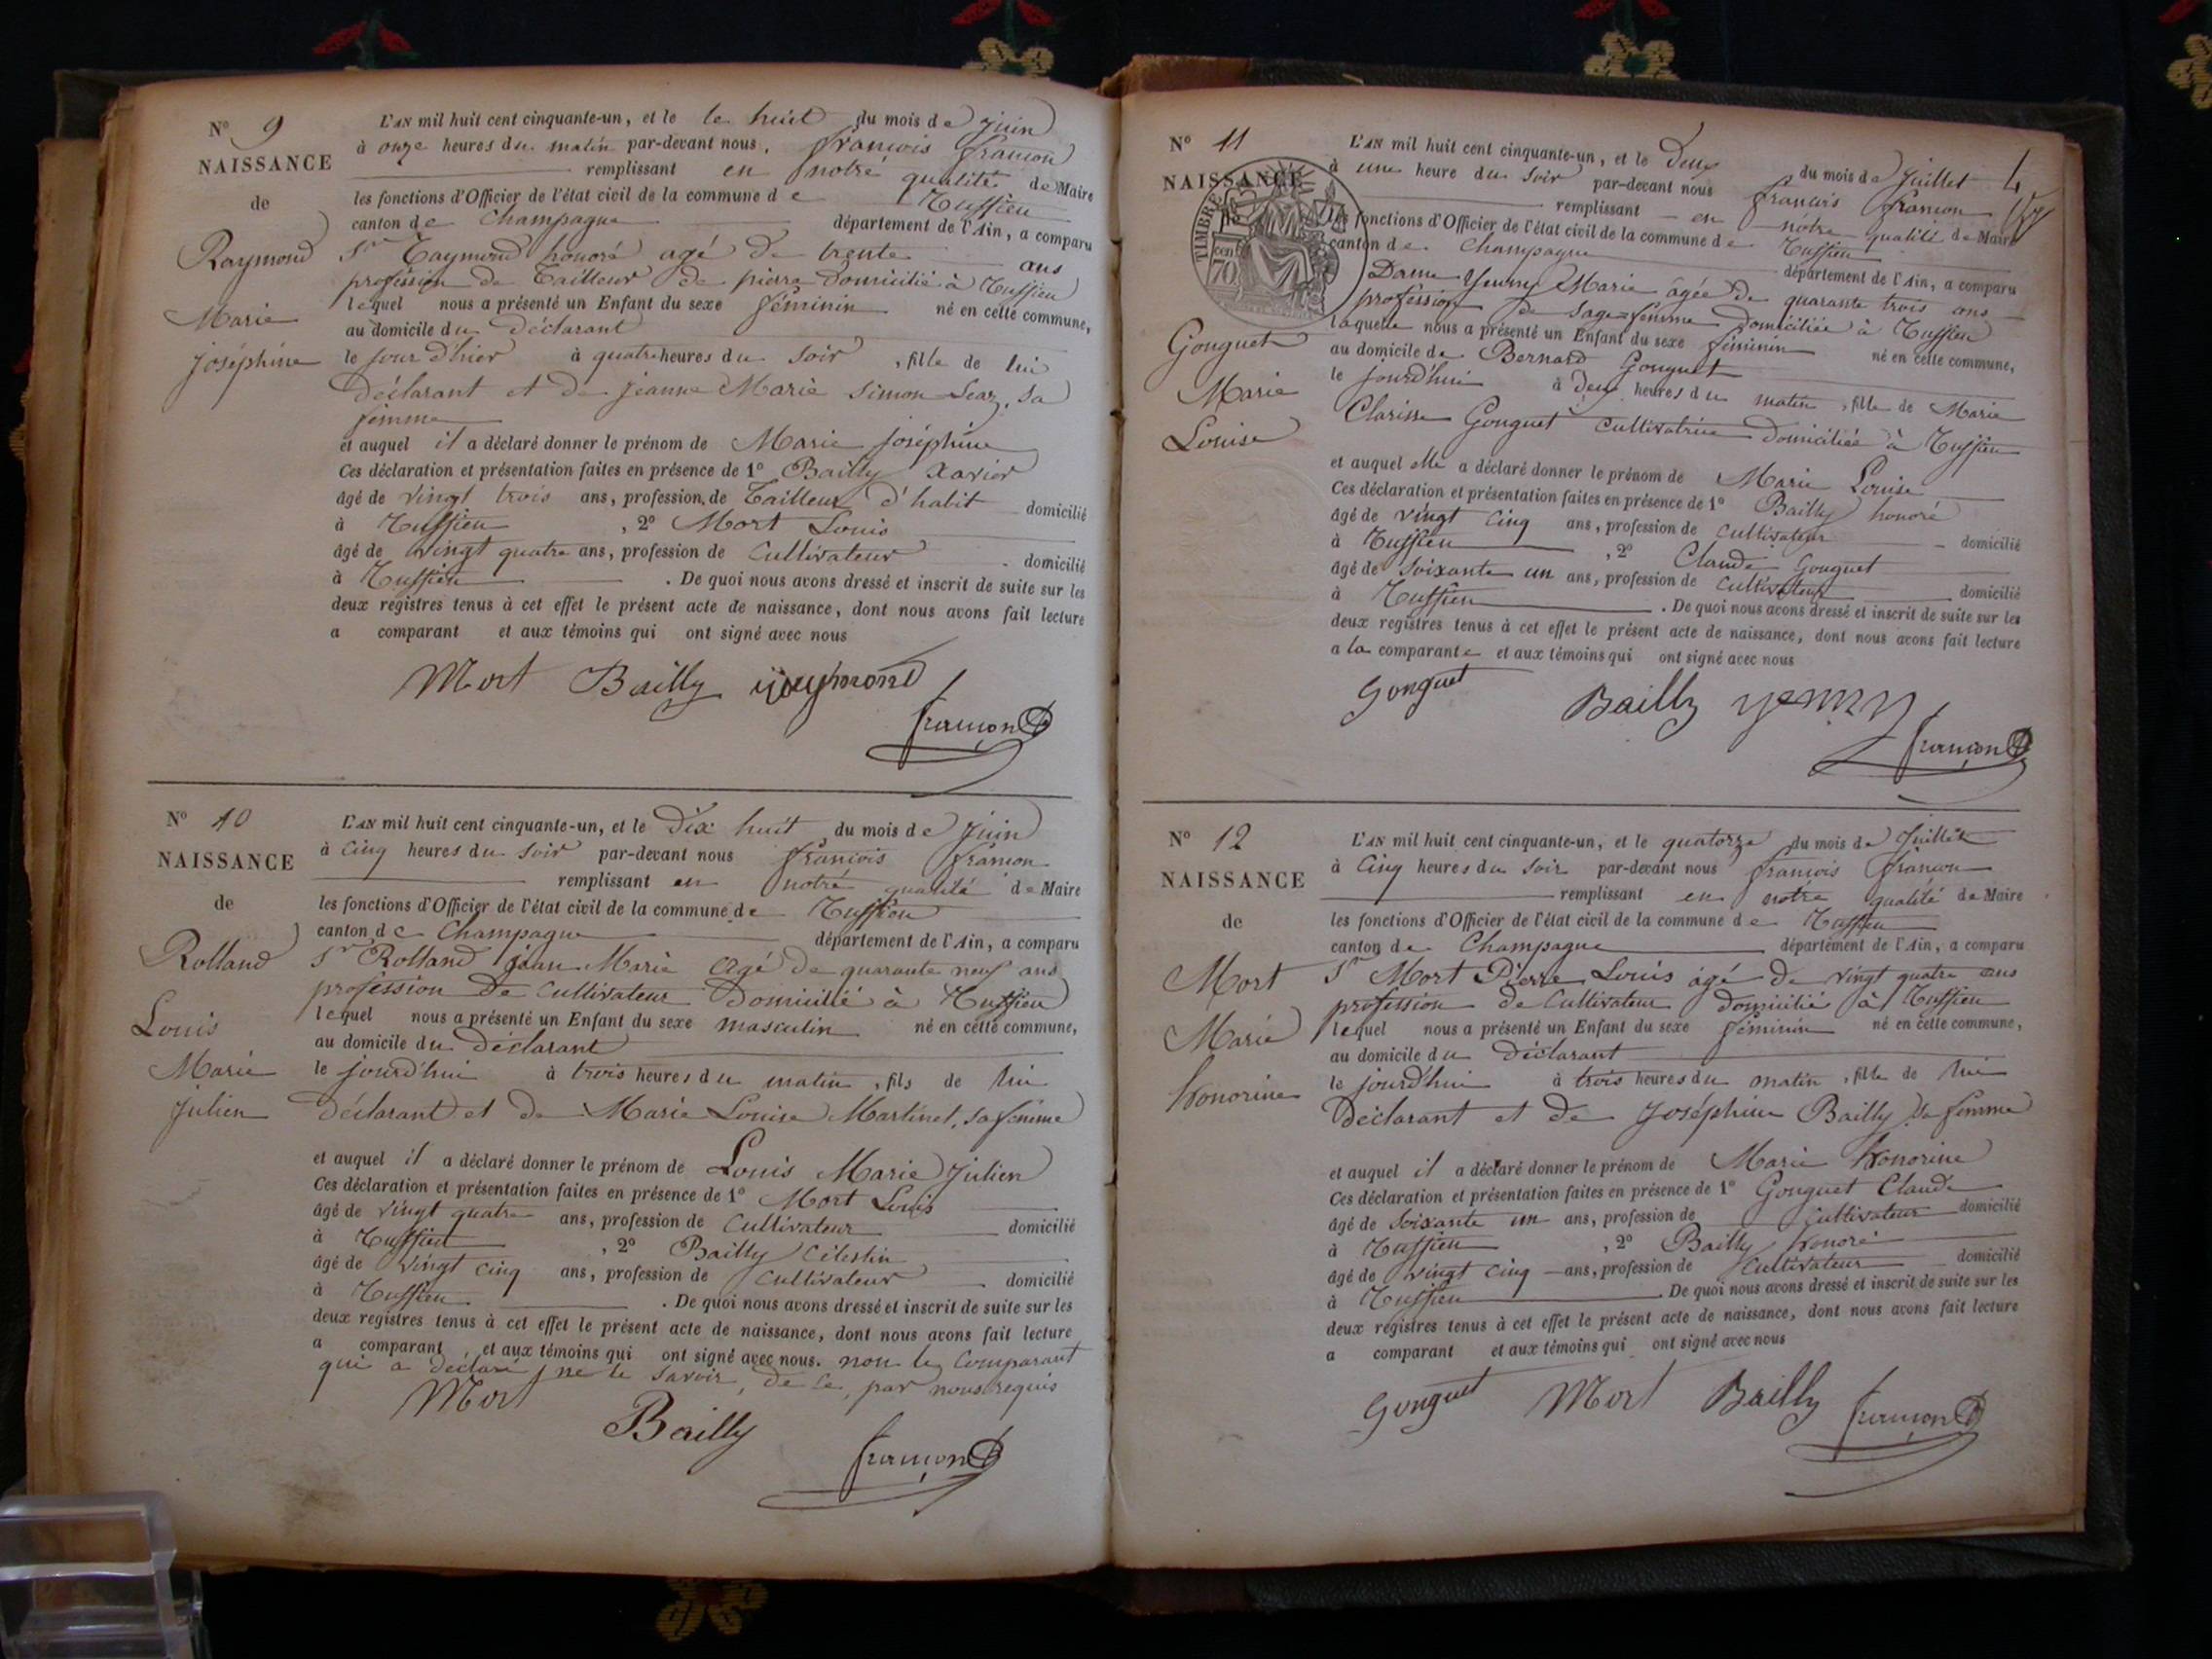 N° 9
NAISSANCE
de
Raymond
Marie
Joséphine
L'AN mil huit cent cinquante-un, et le le huit du mois de juin
à onze heures du matin par-devant nous, françois françon
remplissant en notre qualité de Maire
les fonctions d'Officier de l'état civil de la commune de
canton de Champagne département de l'Ain, a comparu
Sr Raymond honoré agé de trente ans
profession de Tailleur de pierre Domicilié à
lequel nous a présenté un Enfant du sexe féminin né en cette commune,
au domicile du Déclarant
le jour d'hier à quatre heures du soir, fille de lui
Déclarant et de jeanne Marie Simon sa
femme
et auquel il a déclaré donner le prénom de Marie Joséphine
Ces déclaration et présentation faites en présence de 1° Bailly Xavier
âgé de vingt trois ans, profession de Tailleur d'habit domicilié
à , 2° Mort Louis
âgé de vingt quatre ans, profession de Cultivateur domicilié
à . De quoi nous avons dressé et inscrit de suite sur les
deux registres tenus à cet effet le présent acte de naissance, dont nous avons fait lecture
a comparant et aux témoins qui ont signé avec nous
Mort Bailly Raymond
françon
N° 10
NAISSANCE
de
Rolland
Louis
Marie
Julien
L'AN mil huit cent cinquante-un, et le Dix huit du mois de Juin
à Cinq heures du Soir par-devant nous françois françon
remplissant en notre qualité de Maire
les fonctions d'Officier de l'état civil de la commune de
canton de Champagne département de l'Ain, a comparu
Sr Rolland jean Marie agé de quarante neuf ans
profession de Cultivateur Domicilié à
lequel nous a présenté un Enfant du sexe masculin né en cette commune,
au domicile du Déclarant
le jourd'hui à trois heures du matin, fils de lui
Déclarant et de Marie Louise Martinet, sa femme
et auquel il a déclaré donner le prénom de Louis Marie Julien
Ces déclaration et présentation faites en présence de 1° Mort Louis
âgé de vingt quatre ans, profession de Cultivateur domicilié
à , 2° Bailly Célestin
âgé de vingt cinq ans, profession de Cultivateur domicilié
à . De quoi nous avons dressé et inscrit de suite sur les
deux registres tenus à cet effet le présent acte de naissance, dont nous avons fait lecture
a comparant, et aux témoins qui ont signé avec nous. non le Comparant
qui a déclaré ne le savoir, de ce, par nous requis
Mort
Bailly
françon
N° 11
NAISSANCE
TIMBRE
70
Gonguet
Marie
Louise
L'AN mil huit cent cinquante-un, et le Deux du mois de Juillet
à une heure du Soir par-devant nous françois françon
remplissant en notre qualité de Maire
les fonctions d'Officier de l'état civil de la commune de
canton de Champagne département de l'Ain, a comparu
Dame Yenny Marie agée de quarante trois ans
profession de Sage-femme Domiciliée à
laquelle nous a présenté un Enfant du sexe féminin né en cette commune,
au domicile de Bernard Gonguet
le jourd'hui à Deux heures du matin, fille de Marie
Clarisse Gonguet Cultivatrice Domiciliée à
et auquel elle a déclaré donner le prénom de Marie Louise
Ces déclaration et présentation faites en présence de 1° Bailly honoré
âgé de vingt cinq ans, profession de Cultivateur domicilié
à , 2° Claude Gonguet
âgé de Soixante un ans, profession de Cultivateur domicilié
à . De quoi nous avons dressé et inscrit de suite sur les
deux registres tenus à cet effet le présent acte de naissance, dont nous avons fait lecture
a la comparante et aux témoins qui ont signé avec nous
Gonguet Bailly yenny
françon
N° 12
NAISSANCE
de
Mort
Marie
Honorine
L'AN mil huit cent cinquante-un, et le quatorze du mois de Juillet
à Cinq heures du Soir par-devant nous françois françon
remplissant en notre qualité de Maire
les fonctions d'Officier de l'état civil de la commune de
canton de Champagne département de l'Ain, a comparu
Sr Mort Pierre Louis agé de vingt quatre ans
profession de Cultivateur domicilié à
lequel nous a présenté un Enfant du sexe féminin né en cette commune,
au domicile du Déclarant
le jourd'hui à trois heures du matin, fille de lui
Déclarant et de Joséphine Bailly sa femme
et auquel il a déclaré donner le prénom de Marie Honorine
Ces déclaration et présentation faites en présence de 1° Gonguet Claude
âgé de Soixante un ans, profession de Cultivateur domicilié
à , 2° Bailly honoré
âgé de vingt cinq ans, profession de Cultivateur domicilié
à . De quoi nous avons dressé et inscrit de suite sur les
deux registres tenus à cet effet le présent acte de naissance, dont nous avons fait lecture
a comparant et aux témoins qui ont signé avec nous
Gonguet Mort Bailly françon